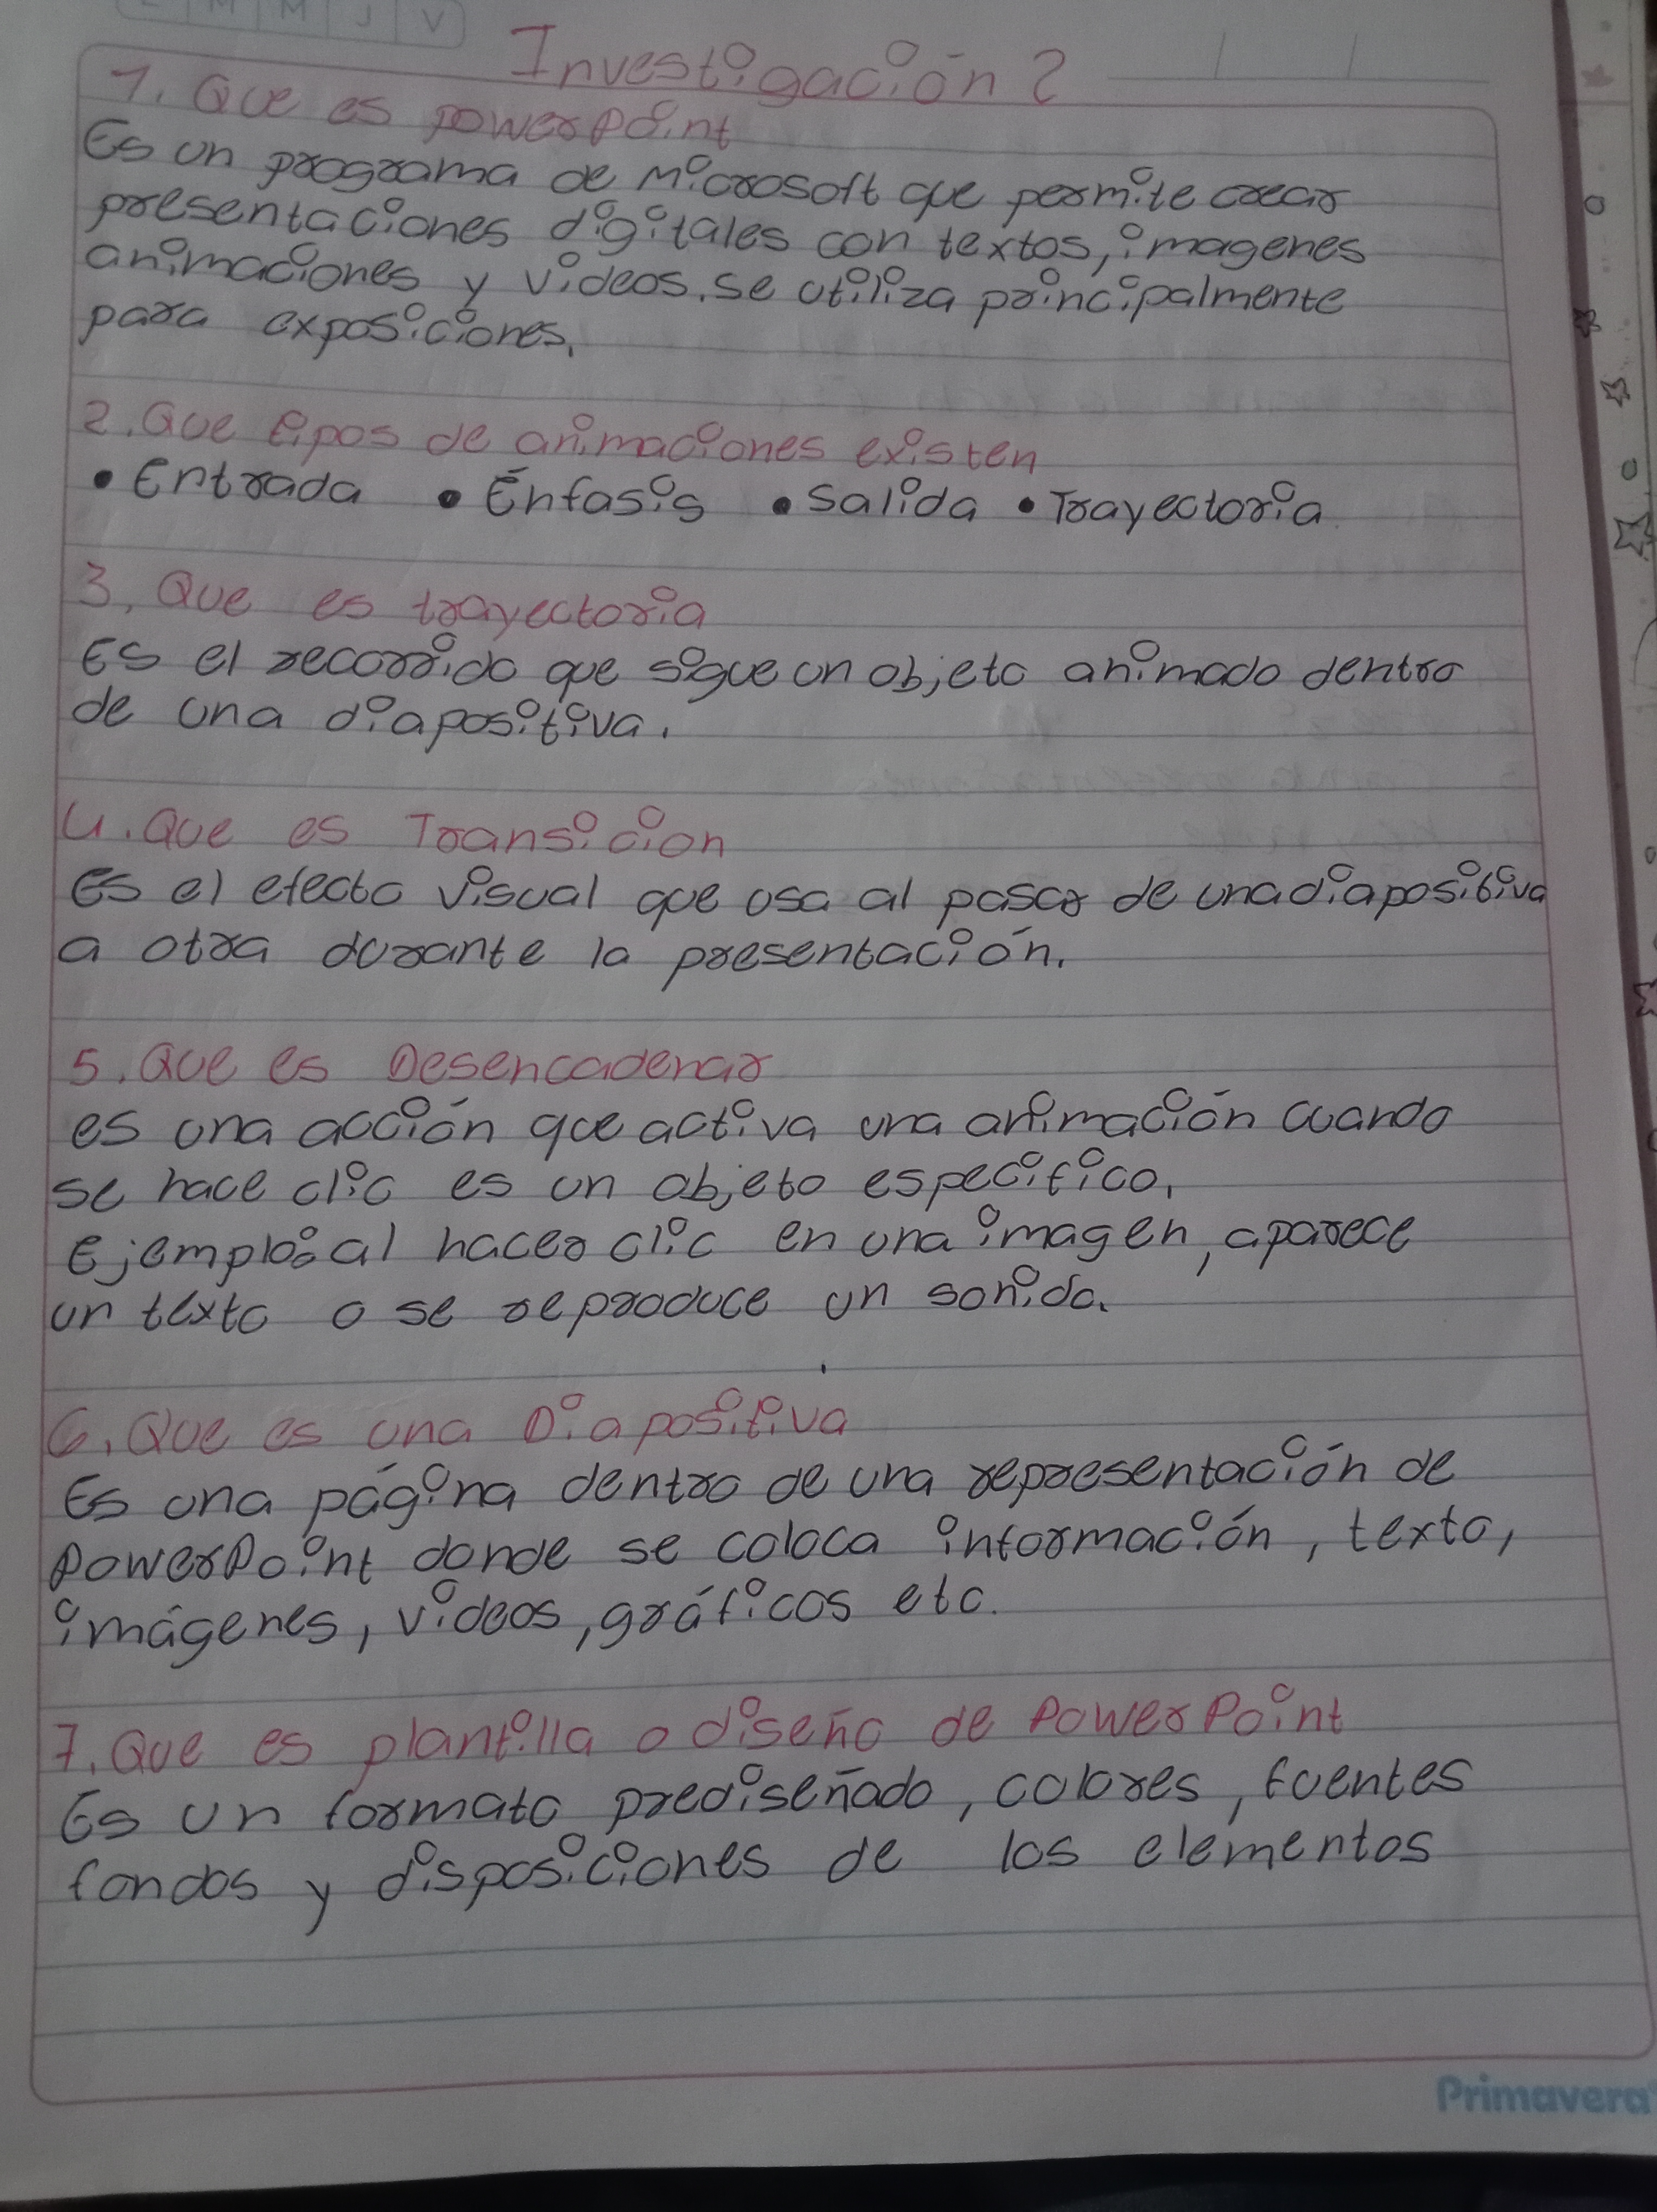 L M M J V
Investigación 2
1. Que es powerPoint
Es un programa de Microsoft que permite crear
presentaciones digitales con textos, imagenes
animaciones y videos. se utiliza principalmente
para exposiciones.
2. Que tipos de animaciones existen
• Entrada • Énfasis • Salida • Trayectoria
3. Que es trayectoria
Es el recorrido que sigue un objeto animado dentro
de una diapositiva.
4. Que es Transicion
Es el efecto visual que usa al pasar de una diapositiva
a otra durante la presentación.
5. Que es Desencadenar
es una acción que activa una animación cuando
se hace clic es un objeto especifico.
Ejemplo: al hacer clic en una imagen, aparece
un texto o se reproduce un sonido.
6. Que es una Diapositiva
Es una página dentro de una representación de
PowerPoint donde se coloca información, texto,
imágenes, videos, gráficos etc.
7. Que es plantilla o diseño de PowerPoint
Es un formato prediseñado, colores, fuentes
fondos y disposiciones de los elementos
Primavera